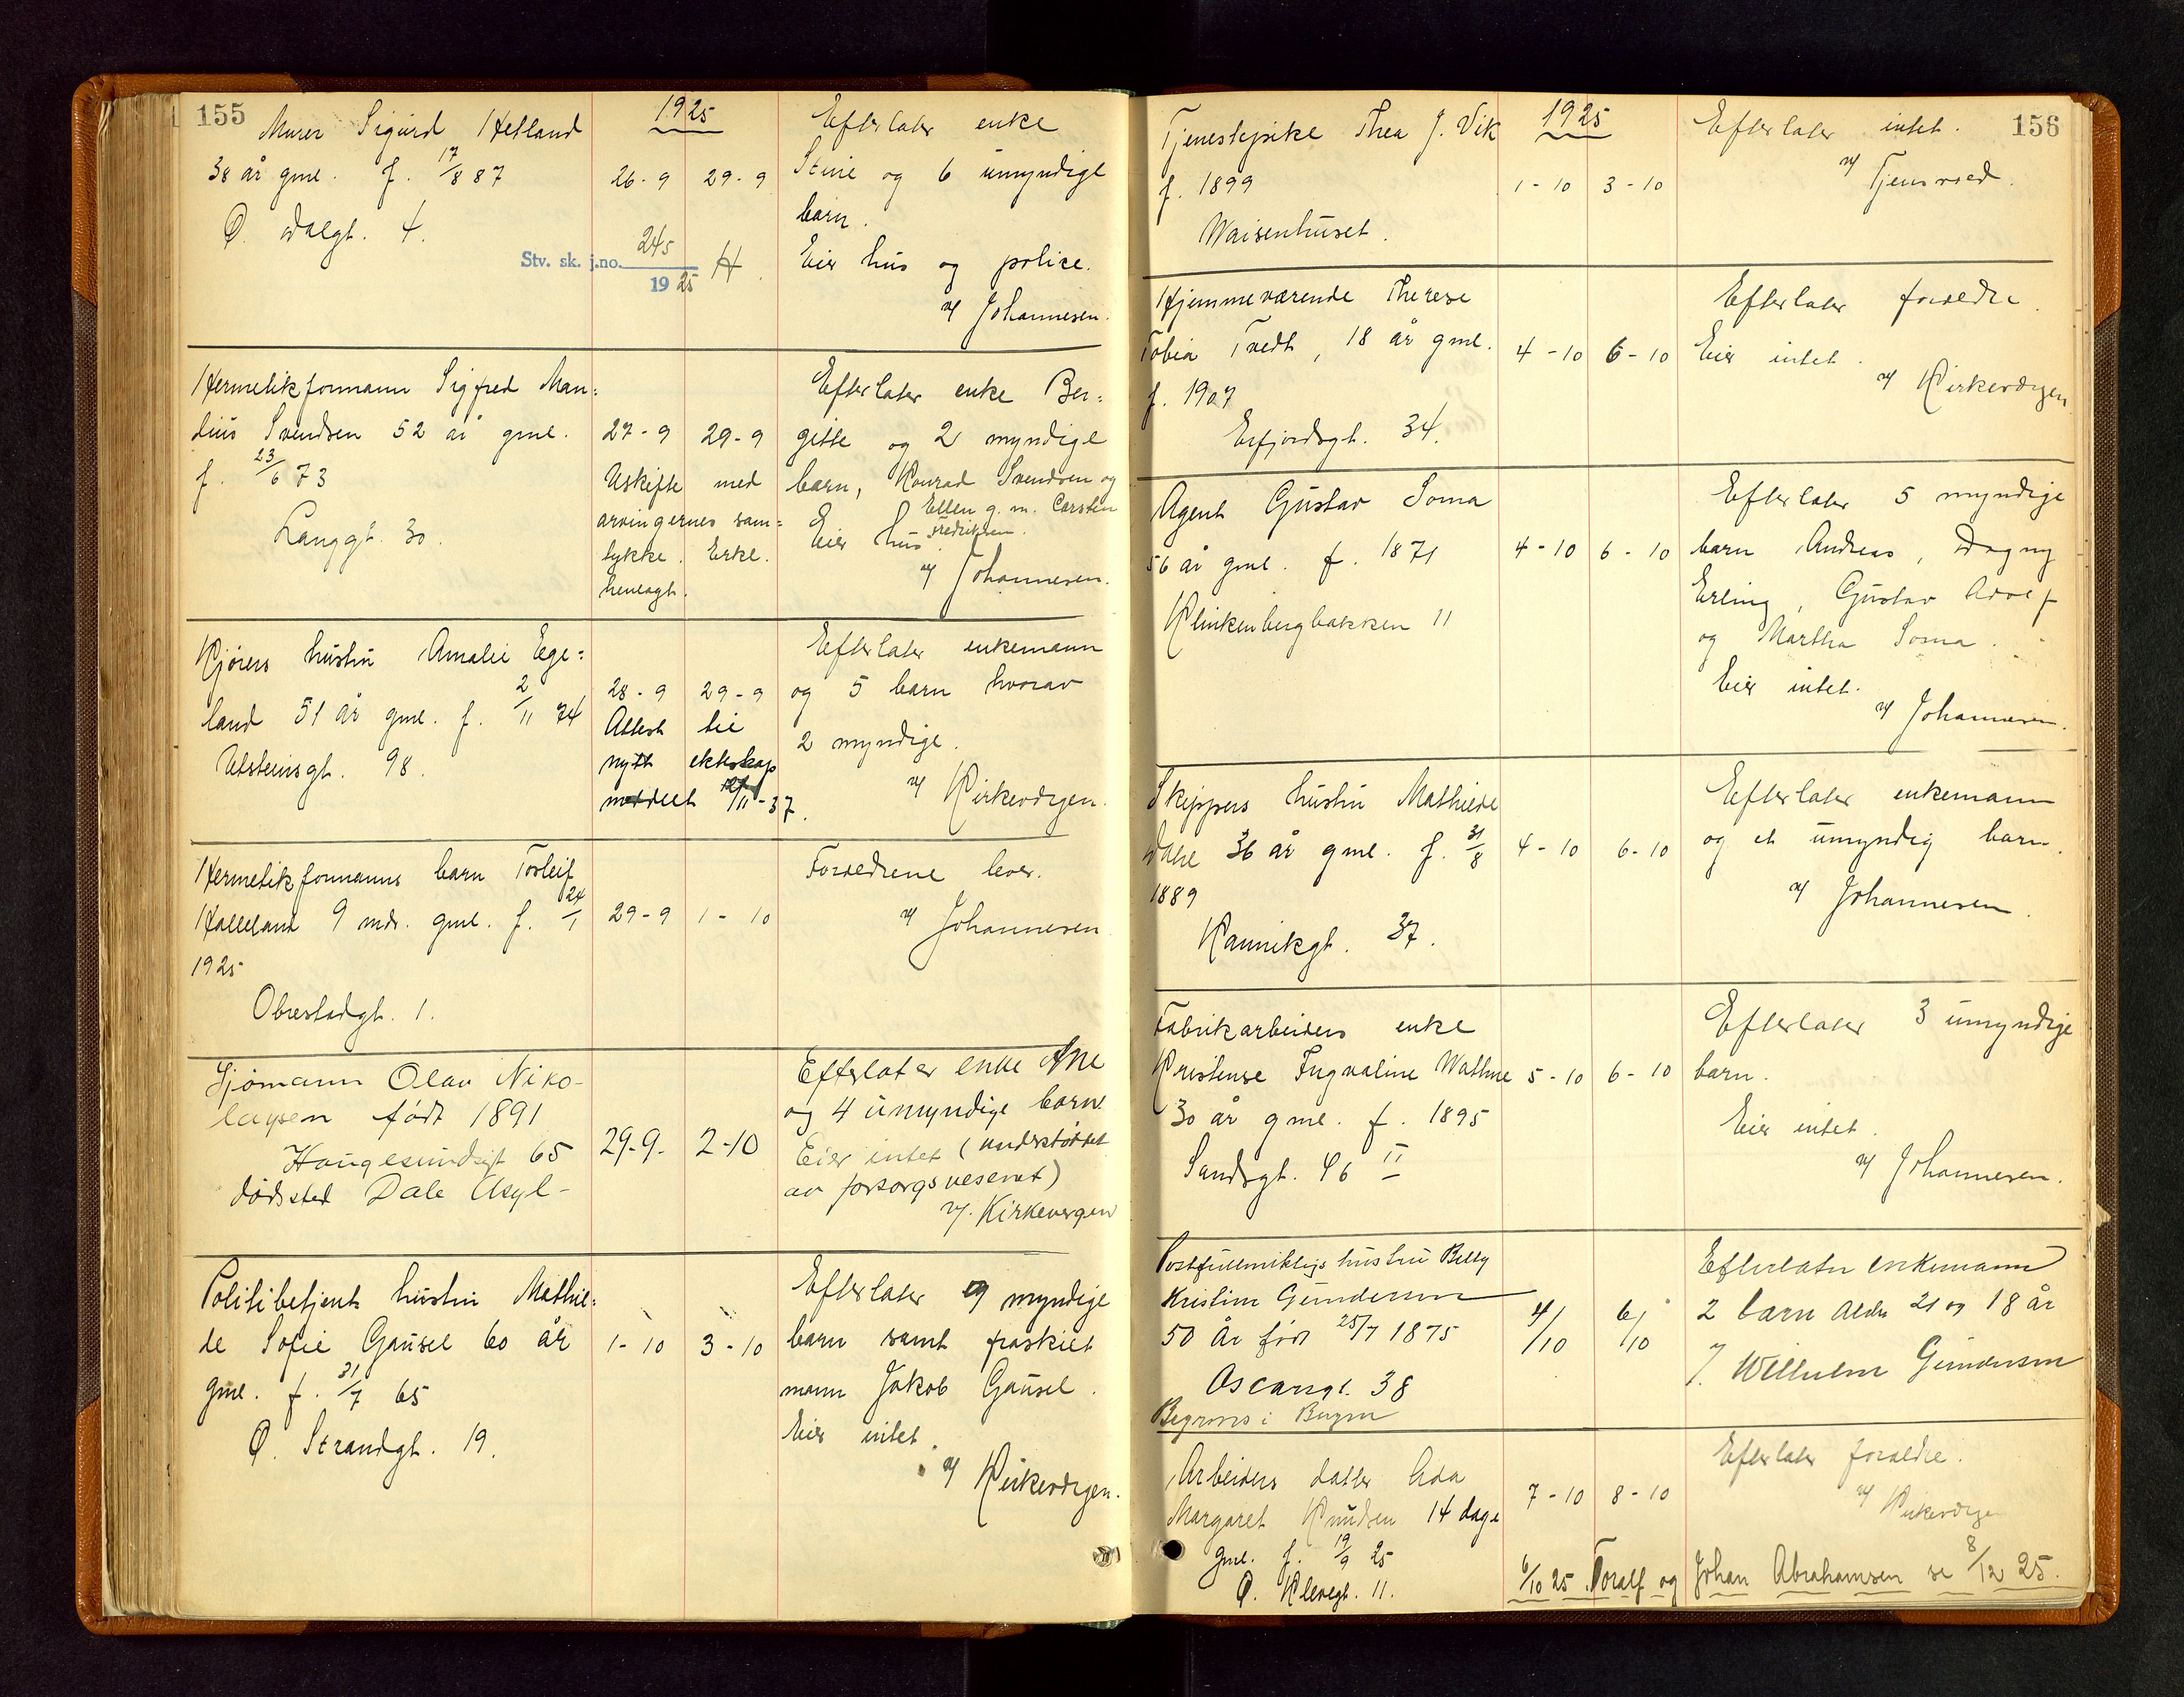 155
1925
Murer Sigurd Hetland
38 år gml. f. 17/8 87
Ø. Dalgt. 4.
26-9 29-9
Stv. sk. j.no. 245 H.
19 25
Efterlater enke
Stine og 6 umyndige
barn.
Eier hus og police.
v/ Johannesen.
Hermetikformann Sigfred Man=
dius Svendsen 52 år gml.
f. 23/6 73
Langgt. 30.
27-9 29-9
Uskifte med
arvingernes sam=
tykke. Erkl.
henlagt.
Efterlater enke Ber=
gitte og 2 myndige
barn, Konrad Svendsen og
Ellen g. m. Carsten
Fredriksen.
Eier hus.
v/ Johannesen.
Kjørers hustru Amalie Ege=
land 51 år gml. f. 2/11 74
Utsteinsgt. 98.
28-9 29-9
Attest til
nytt ekteskap
meddelt /11-37.
Efterlater enkemann
og 5 barn hvorav
2 myndige.
v/ Kirkevergen.
Hermetikformanns barn Torleif
Halleland 9 mdr. gml. f. 24/1
1925
Obrestadgt. 1.
29-9 1-10
Forældrene lever.
v/ Johannesen
Sjømann Olav Niko-
laysen født 1891
Haugesundsgt 65
dødssted Dale Asyl-
29-9. 2-10
Efterlater enke Ane
og 4 umyndige barn
Eier intet (understøttet
av forsorgsvesenet)
v/. Kirkevergen
Politibetjents hustru Mathil=
de Sofie Gausel 60 år
gml. f. 31/7 65
Ø. Strandgt. 19.
1-10 3-10
Efterlater 9 myndige
barn samt fraskilt
mann Jakob Gausel.
Eier intet.
v/ Kirkevergen.
156
1925
Tjenestepike Thea J. Vik
f. 1899
Waisenhuset.
1-10 3-10
Efterlater intet.
v/ Tjensvold.
Hjemmeværende Therese
Tobia Tvedt, 18 år gml.
f. 1907
Erfjordsgt. 34.
4-10 6-10
Efterlater forældre.
Eier intet.
v/ Kirkevergen
Agent Gustav Soma
56 år gml. f. 1871
Klinkenbergbakken 11
4-10 6-10
Efterlater 5 myndige
barn Andreas, Dagny
Erling, Gustav Adolf
og Martha Soma.
Eier intet.
v/ Johannesen.
Skippers hustru Mathilde
Dahl 36 år gml. f. 31/8
1889
Kannikgt. 37.
4-10 6-10
Efterlater enkemann
og et umyndig barn.
v/ Johannesen.
Fabrikarbeiders enke
Kristense Ingvaline Wathne
30 år gml. f. 1895
Sandsgt. 46 II
5-10 6-10
Efterlater 3 umyndige
barn.
Eier intet.
v/ Johannesen.
Postfullmektigs hustru Betty
Kristine Gundersen
50 år født 25/7 1875
Oscarsgt. 38
Begraves i Bergen
4/10 6/10
Efterlater enkemann
2 barn alder 21 og 18 år
Wilhelm Gundersen
Arbeiders datter Ada
Margaret Knudsen 14 dage
gml. f. 19/9 25
Ø. Klevegt. 11.
7-10 8-10
Efterlater forældre.
v/ Kirkevergen
6/10 25 Toralf og Johan Abrahamsen se 8/12 25.